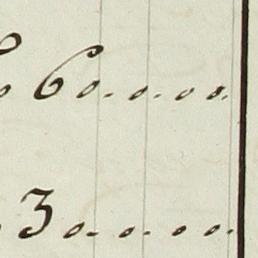 60.0.00.
30.0.0 0.